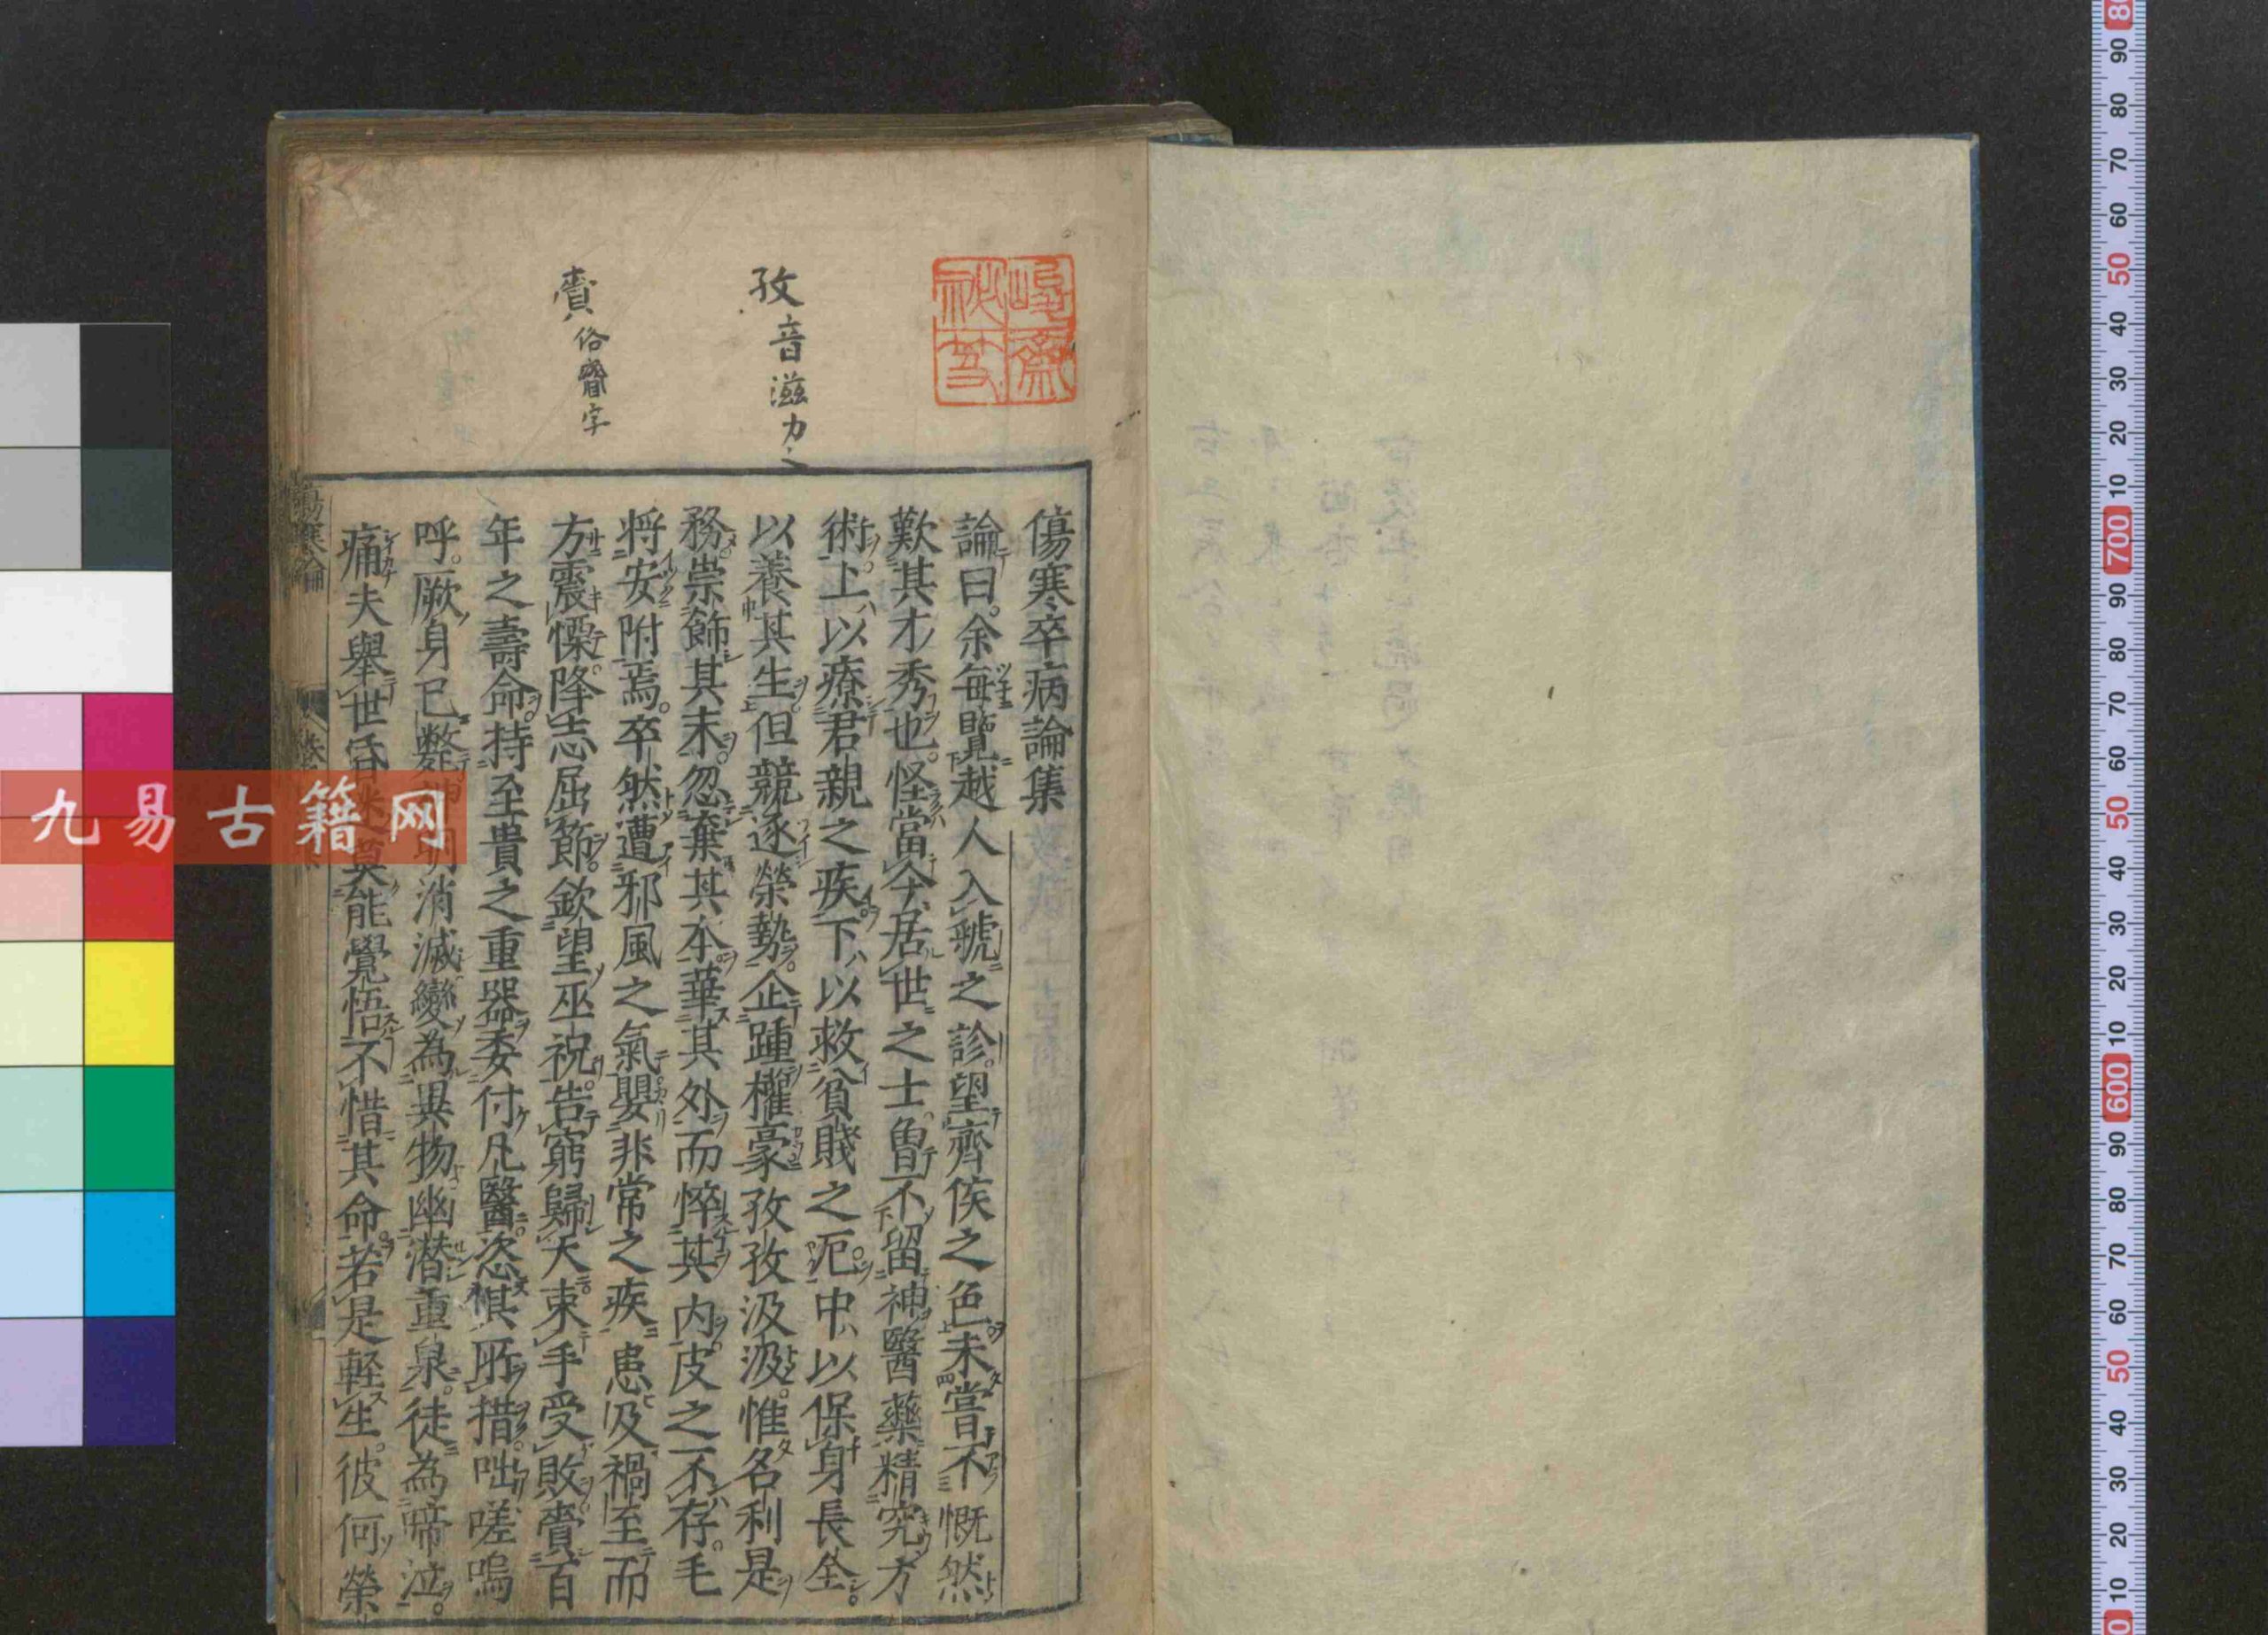 傷寒卒病論集
論曰余每覽越人入虢之診望齊侯之色未嘗不慨然
歎其才秀也怪當今居世之士曾不留神醫藥精究方
術上以療君親之疾下以救貧賤之厄中以保身長全
以養其生但競逐榮勢企踵權豪孜孜汲汲惟名利是
務崇飾其末忽棄其本華其外而悴其內皮之不存毛
将安附焉卒然遭邪風之氣嬰非常之疾患及禍至而
方震慄降志屈節欽望巫祝告窮歸天束手受敗賷百
年之壽命持至貴之重器委付凡醫恣其所措咄嗟嗚
呼厥身已斃神明消滅變為異物幽潛重泉徒為啼泣
痛夫舉世昏迷莫能覺悟不惜其命若是輕生彼何榮
孜音滋力之
賷俗齎字
傷寒論
九易古籍网
80 90 80 70 60 50 40 30 20 10 700 90 80 70 60 50 40 30 20 10 600 90 80 70 60 50 40 30 20 10